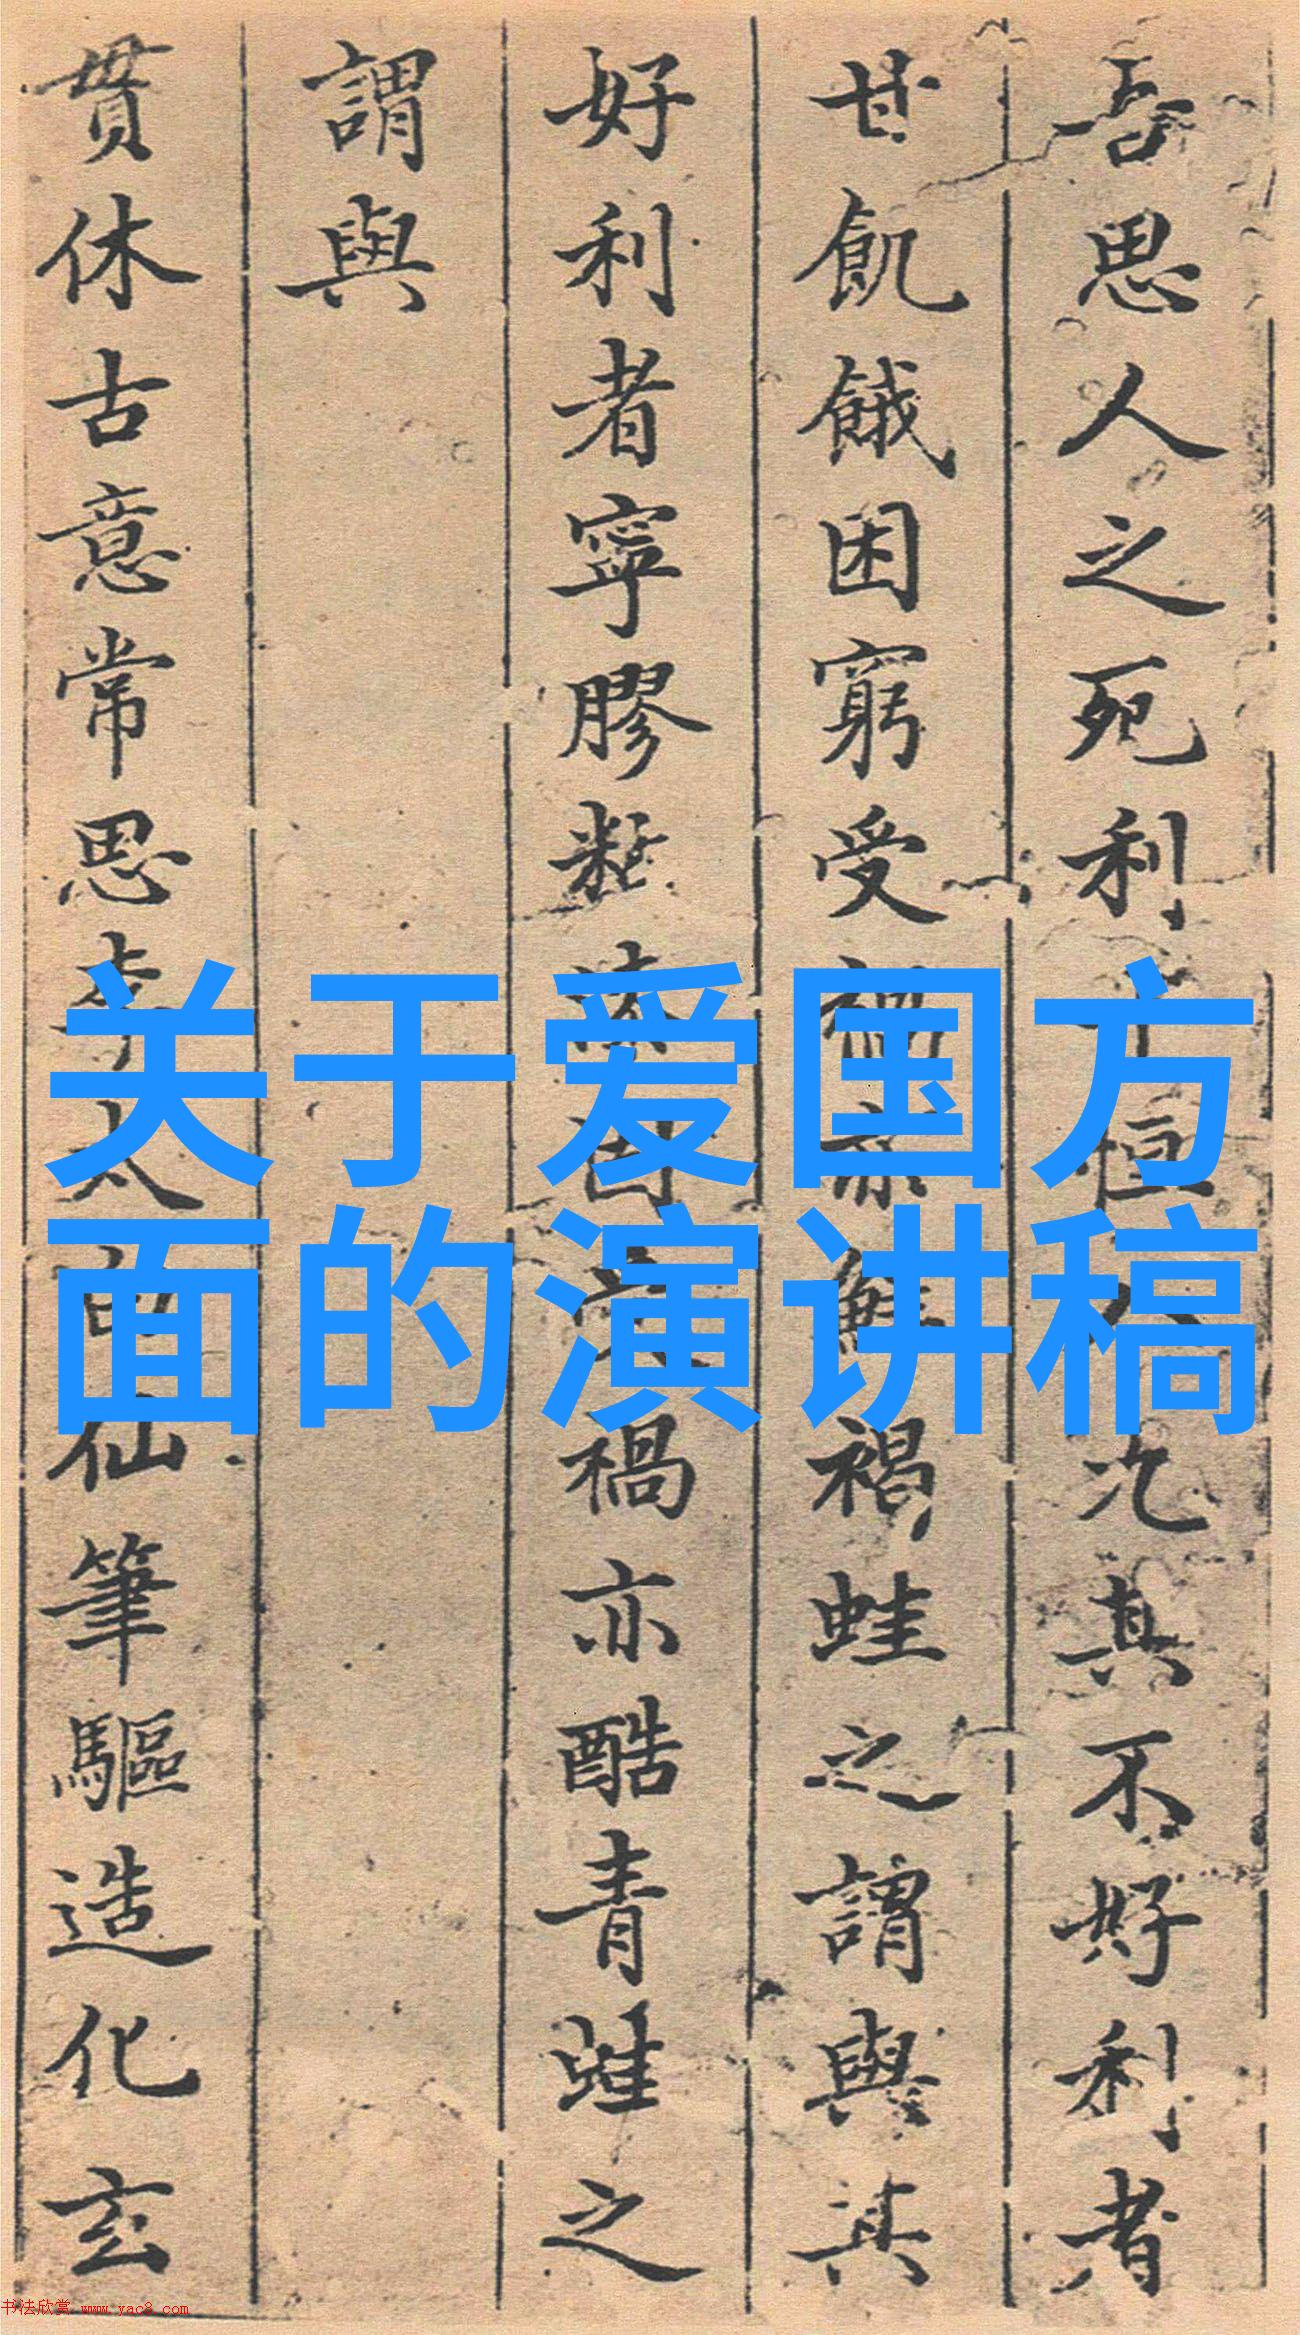 吾思人之死利恒況其不好利者
甘飢餓困窮受禍亦鮮禍蛙之謂與其
好利者寧膠禍亦酷青蛙之
謂與
貫休古意常思李太白仙筆驅造化玄
关于爱国方
面的演讲稿
书法欣赏 www.yac8.com